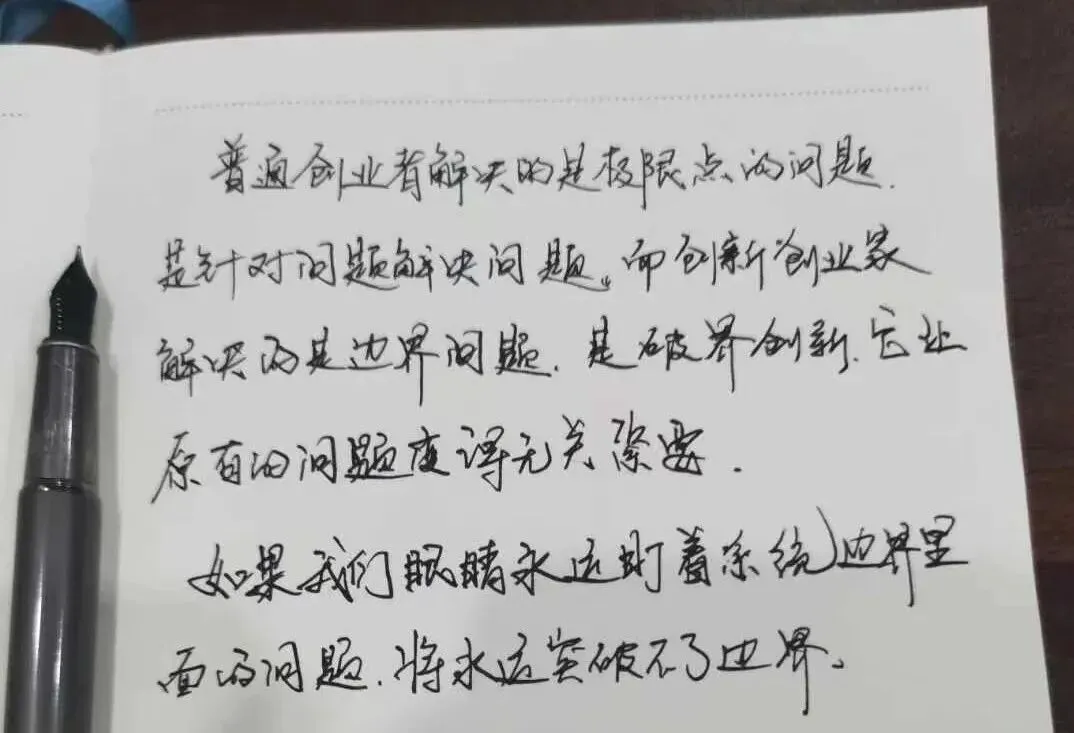 普通创业者解决的是极限点的问题.
是针对问题解决问题。而创新创业家
解决的是边界问题.是破界创新.它让
原有的问题变得无关紧要.
如果我们眼睛永远盯着系统边界里
面的问题.将永远突破不了边界。